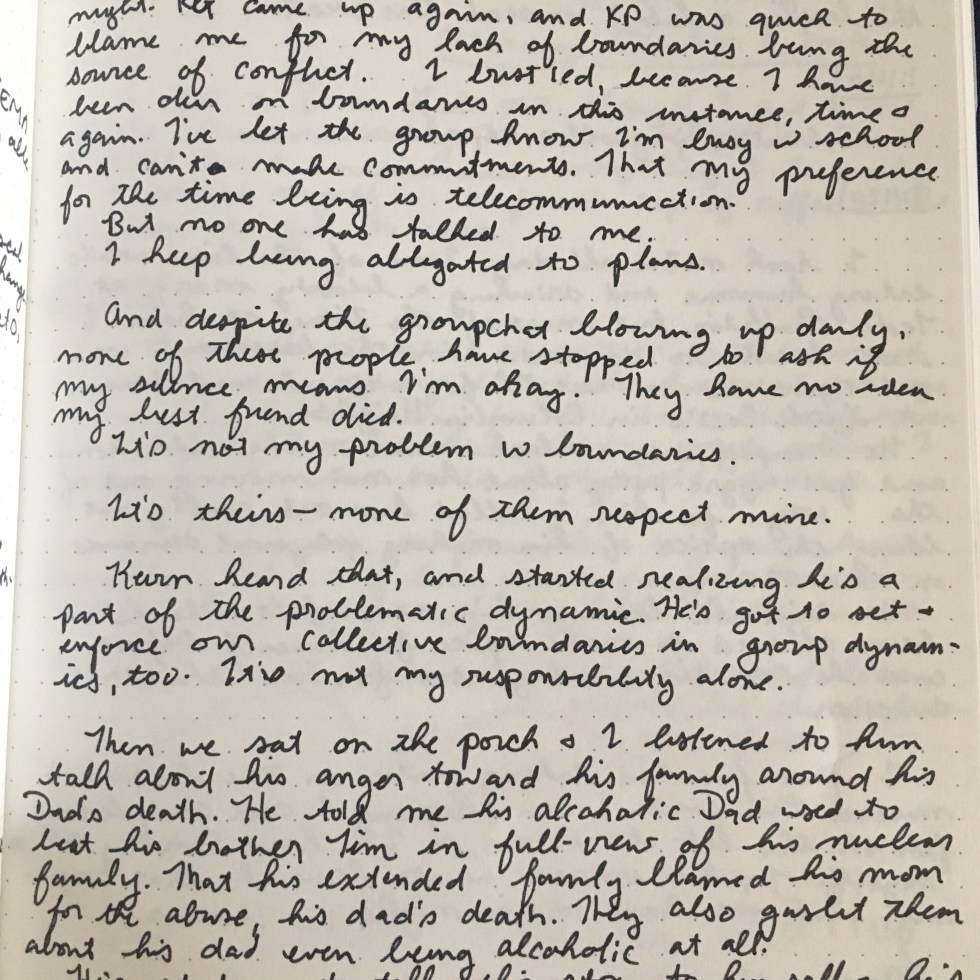 night. Kev came up again, and KP was quick to
blame me for my lack of boundaries being the
source of conflict. I bristled, because I have
been clear on boundaries in this instance, time &
again. I've let the group know I'm busy w school
and can't make commitments. That my preference
for the time being is telecommunication.
But no one has talked to me.
I keep being ablegated to plans.
And despite the groupchat blowing up daily,
none of these people have stopped to ask if
my silence means I'm okay. They have no idea
my best friend died.
It's not my problem w boundaries.
It's theirs – none of them respect mine.
Kevin heard that, and started realizing he's a
part of the problematic dynamic. He's got to set +
enforce our collective boundaries in group dynam-
ics, too. It's not my responsibility alone.
Then we sat on the porch & I listened to him
talk about his anger toward his family around his
Dad's death. He told me his alcoholic Dad used to
beat his brother Tim in full-view of his nuclear
family. That his extended family blamed his mom
for the abuse, his dad's death. They also gaslit them
about his dad even being alcoholic at all.